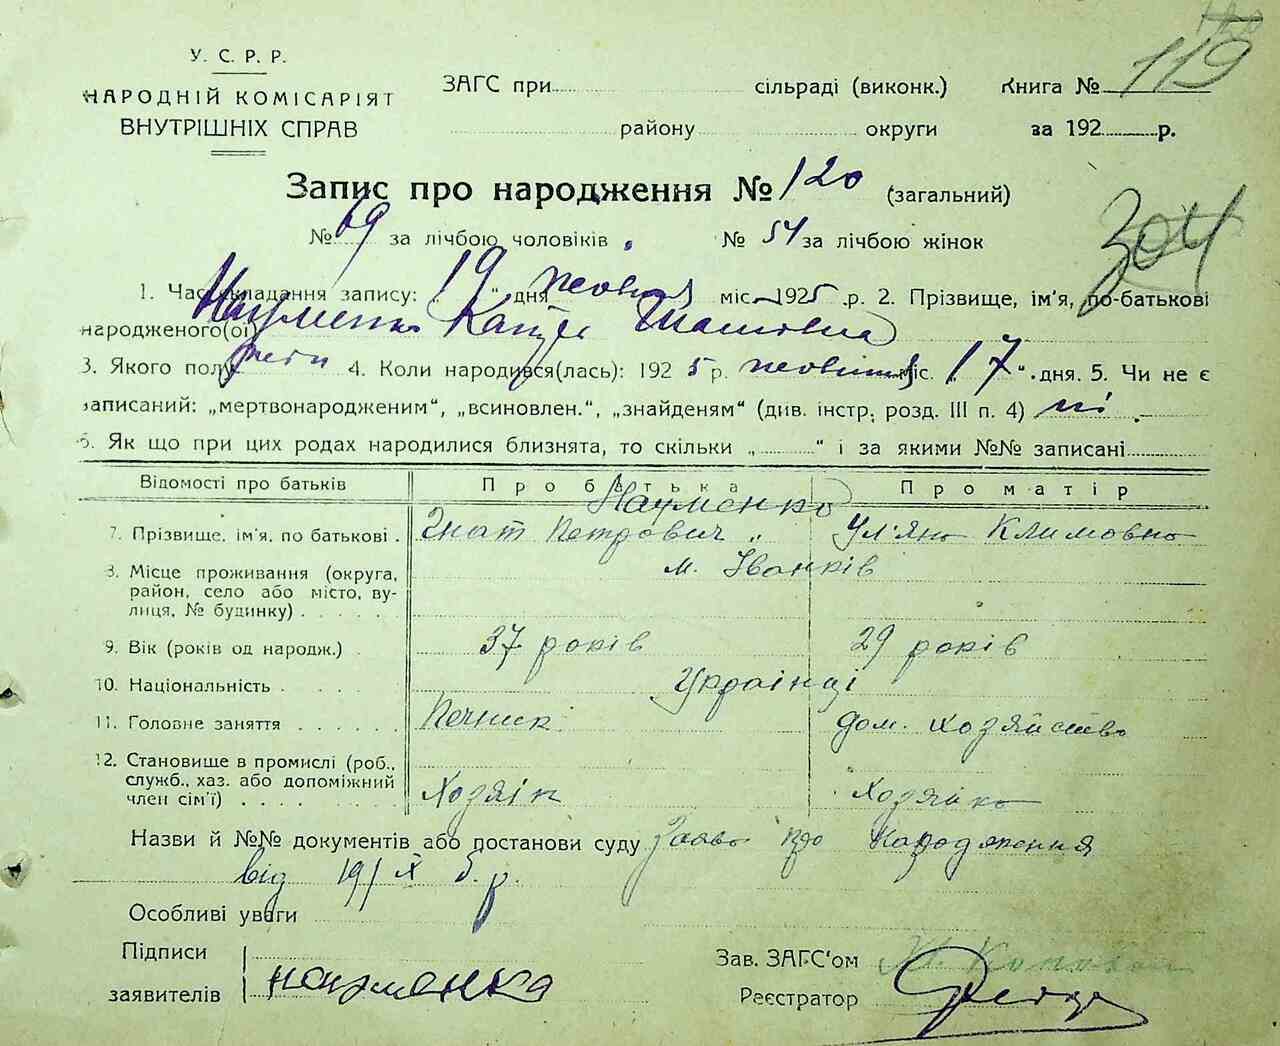 119
У. С. Р. Р.
НАРОДНІЙ КОМІСАРІЯТ
ВНУТРІШНІХ СПРАВ
ЗАГС при сільраді (виконк.) Книга №
району округи за 192 р.
Запис про народження № 120 (загальний)
№ 69 за лічбою чоловіків. № 51 за лічбою жінок
304
1. Час складання запису: „19“ дня жовтня міс. 1925 р. 2. Прізвище, ім'я, по-батькові
народженого(ої) Науменко
3. Якого полу 4. Коли народився(лась): 1925 р. жовтня міс. „17“ дня. 5. Чи не є
записаний: „мертвонародженим“, „всиновлен.“, „знайденям“ (див. інстр. розд. III п. 4) ні
6. Як що при цих родах народилися близнята, то скільки „ “ і за якими №№ записані
Відомості про батьків Про батька Про матір
Науменко
7. Прізвище, ім'я, по батькові . Гнат Петрович „ Ул'яна Климовна
8. Місце проживання (округа, район, село або місто, вулиця, № будинку) . . . . м. Іванків
9. Вік (років од народж.) . 37 років 29 років
10. Національність . . . . . Українці
11. Головне заняття . . . . . . Печник дом. хозяйство
12. Становище в промислі (роб., служб., хаз. або допоміжний член сім'ї) . . . . Хозяін Хозяйка
Назви й №№ документів або постанови суду Заява про народження
від 19/X б.р.
Особливі уваги
Підписи
заявителів Науменко
Зав. ЗАГС'ом
Реєстратор